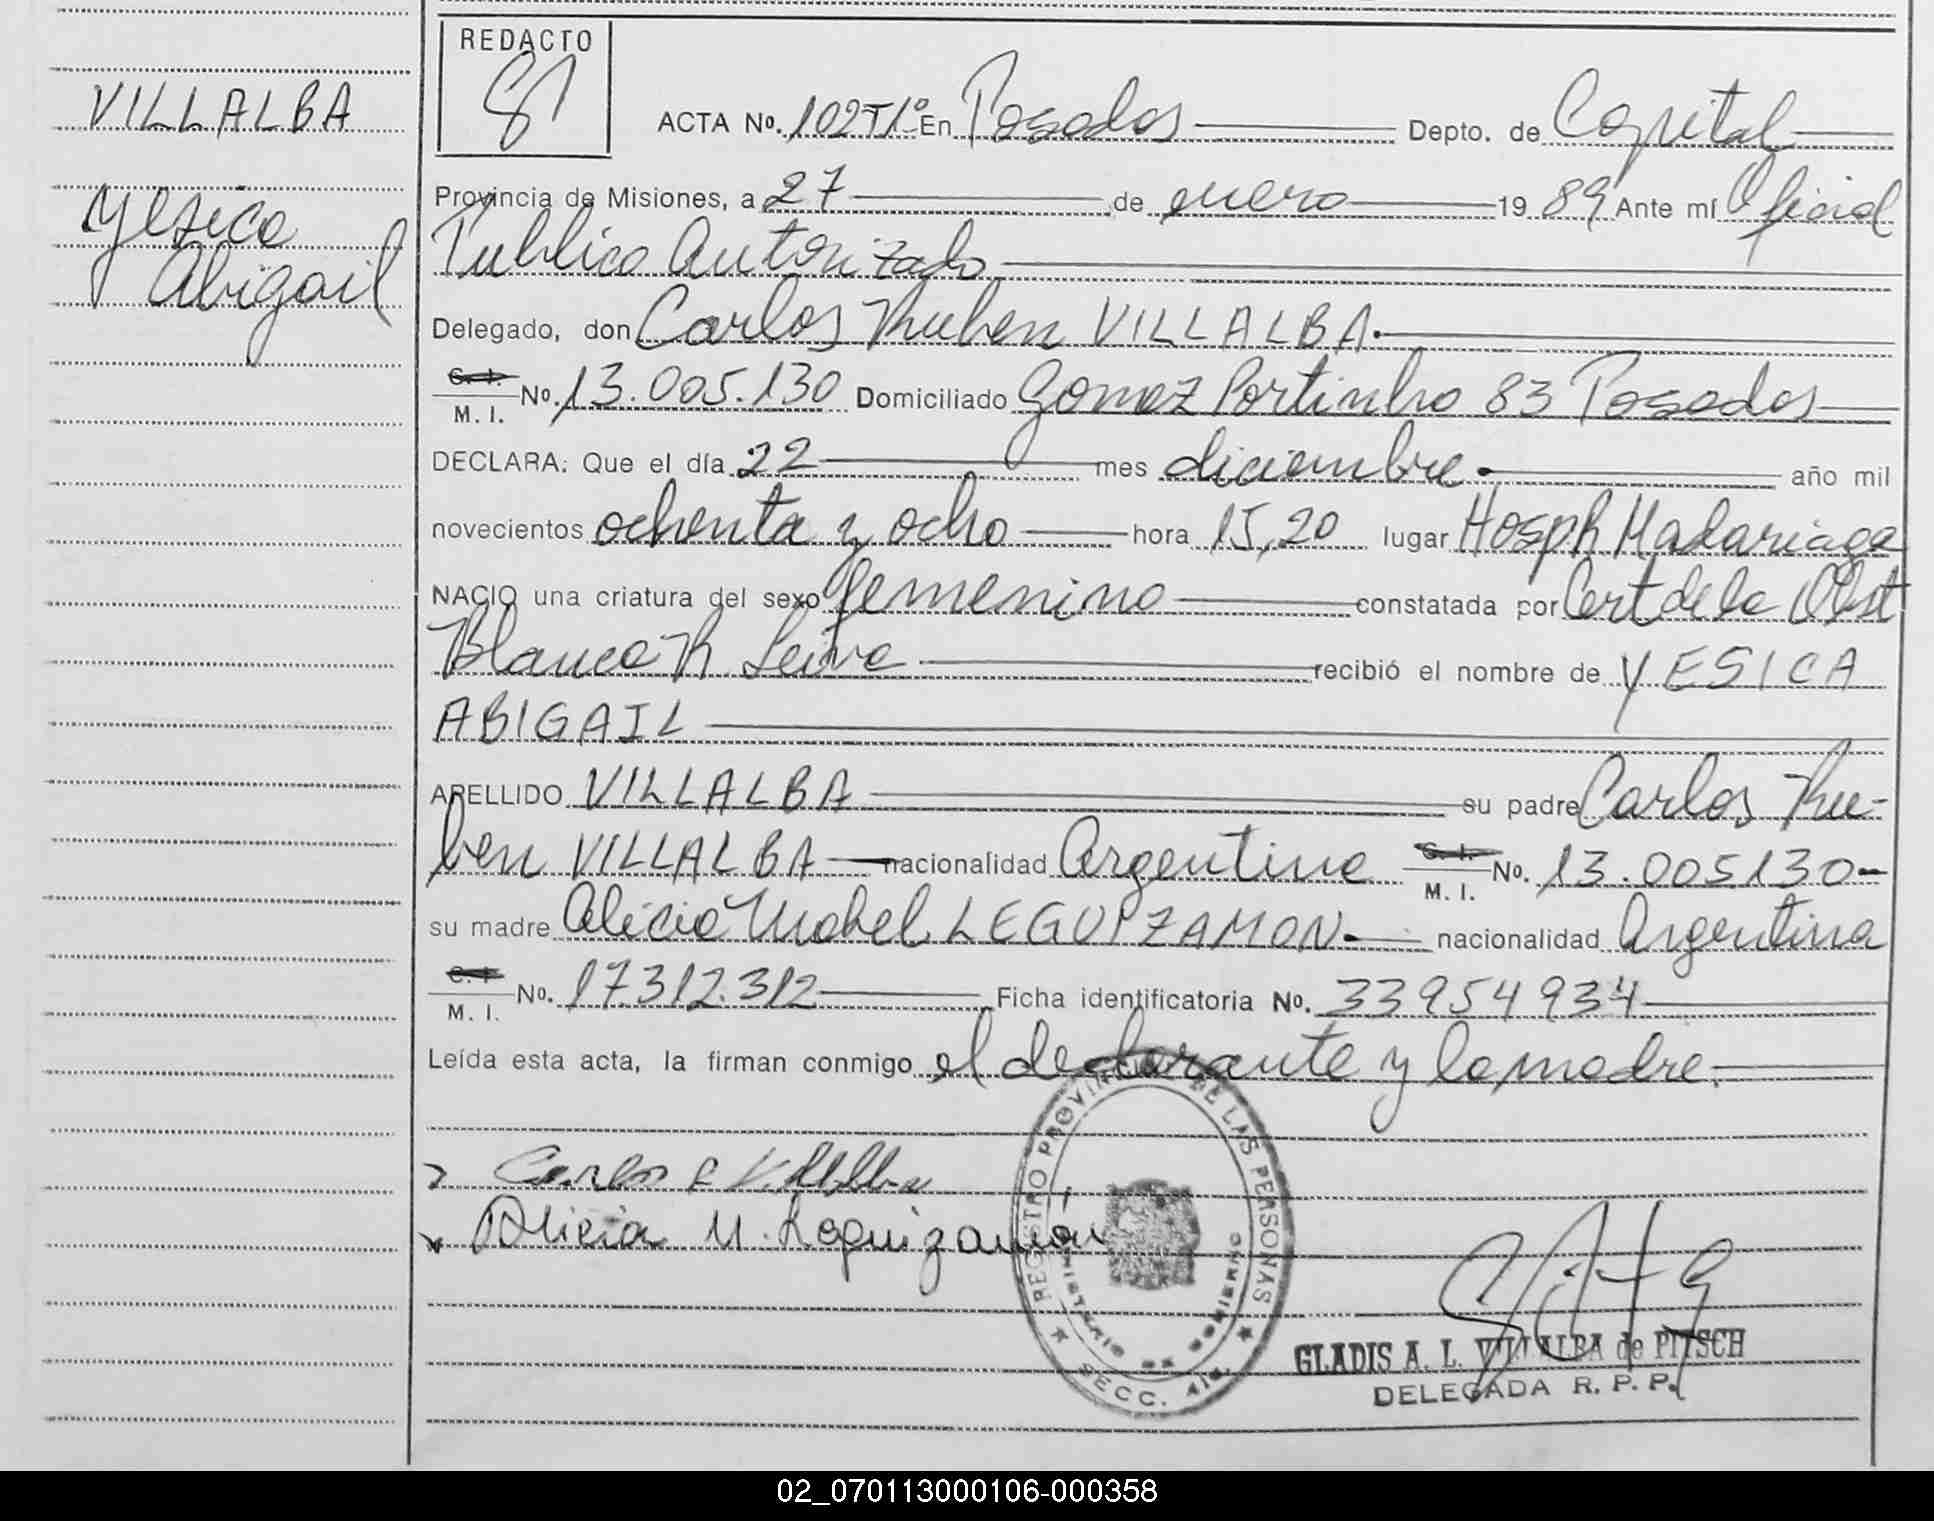 REDACTO
VILLALBA
Yesica
Abigail
ACTA Nº. 102T1º En Posadas Depto. de Capital
Provincia de Misiones, a 27 de enero 19 89 Ante mí Oficial
Publico Autorizado
Delegado, don Carlos Ruben VILLALBA.
C. I.
M. I. Nº. 13.005.130 Domiciliado Gomez Portinho 83 Posadas
DECLARA: Que el día 22 mes diciembre. año mil
novecientos ochenta y ocho hora 15,20 lugar Hosp R Madariaga
NACIO una criatura del sexo femenino constatada por Cert de la Obst
Blanca R. Leiva recibió el nombre de YESICA
ABIGAIL
APELLIDO VILLALBA su padre Carlos Ru-
ben VILLALBA nacionalidad Argentina C. I.
M. I. Nº. 13.005130-
su madre Alicia Mabel LEGUIZAMON. nacionalidad Argentina
C. I.
M. I. Nº. 17.312.312 Ficha identificatoria Nº. 33954934
Leída esta acta, la firman conmigo el declarante y la madre.
Carlos R Villalba
Alicia M. Leguizamón
REGISTRO PROVINCIAL DE LAS PERSONAS
MINISTERIO DE GOBIERNO
SECC. 4ta.
GLADIS A. L. VILLALBA de PITSCH
DELEGADA R. P. P.
02_070113000106-000358